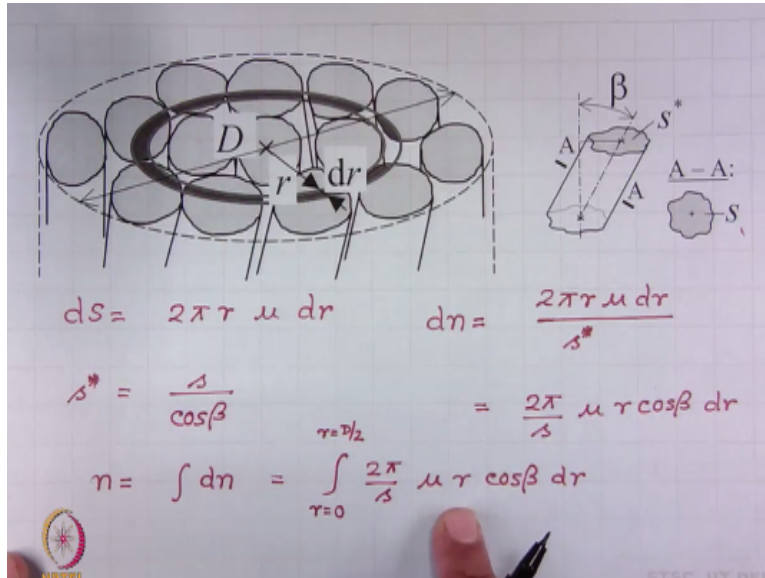 D
r
dr
β
s*
A
A
A – A:
S
dS = 2π r μ dr
dn = 2πr μ dr / s*
s* = s / cosβ
= 2π/s μ r cosβ dr
n = ∫ dn = ∫_{r=0}^{r=D/2} 2π/s μ r cosβ dr